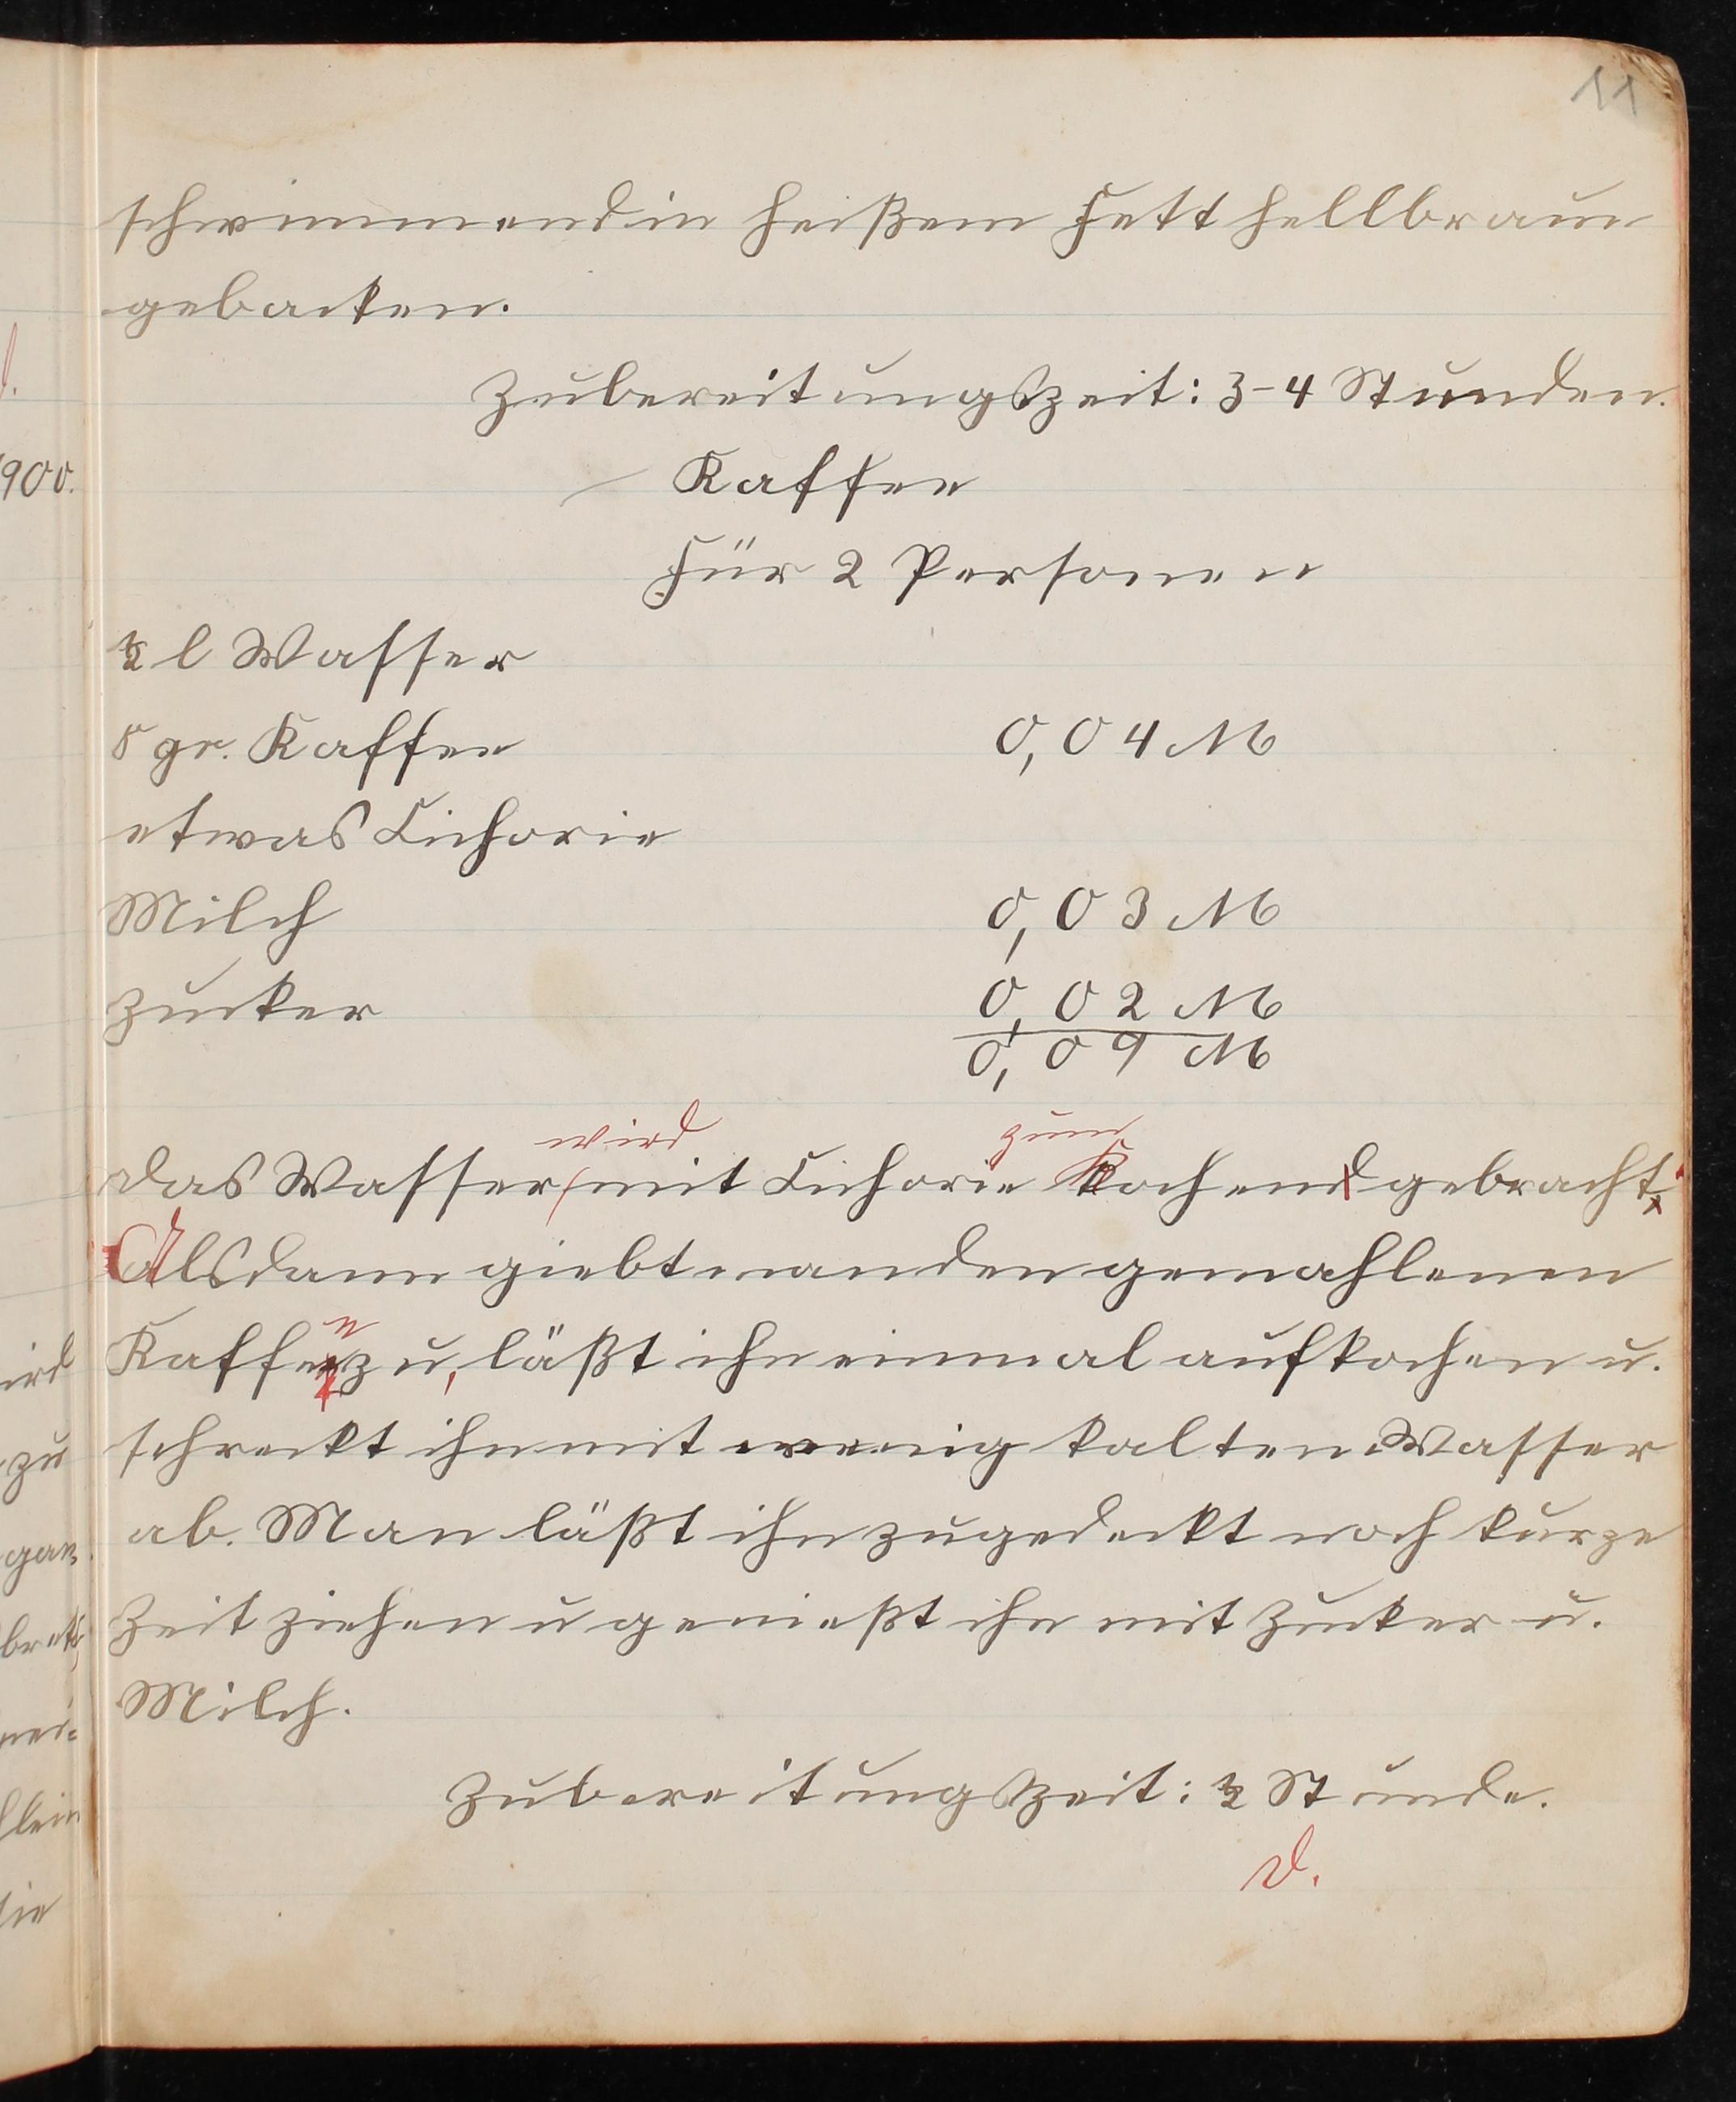 11
schwimmend in heißem Fett hellbraun
gebacken.
Zubereitungszeit: 3-4 Stunden.
Kaffee
Für 2 Personen
½ l Wasser
8 gr. Kaffee 0,04 M
etwas Cichorie
Milch 0,03 M
Zucker 0,02 M
0,09 M
wird zum
das Wasser mit Cichorie Kochen gebracht.
Alsdann giebt man den gemahlenen
Kaffee zu, läßt ihn einmal aufkochen u.
schreckt ihn mit wenig kalten Wasser
ab. Man läßt ihn zugedeckt noch kurze
Zeit ziehen u genießt ihn mit Zucker u.
Milch.
Zubereitungszeit: ½ Stunde.